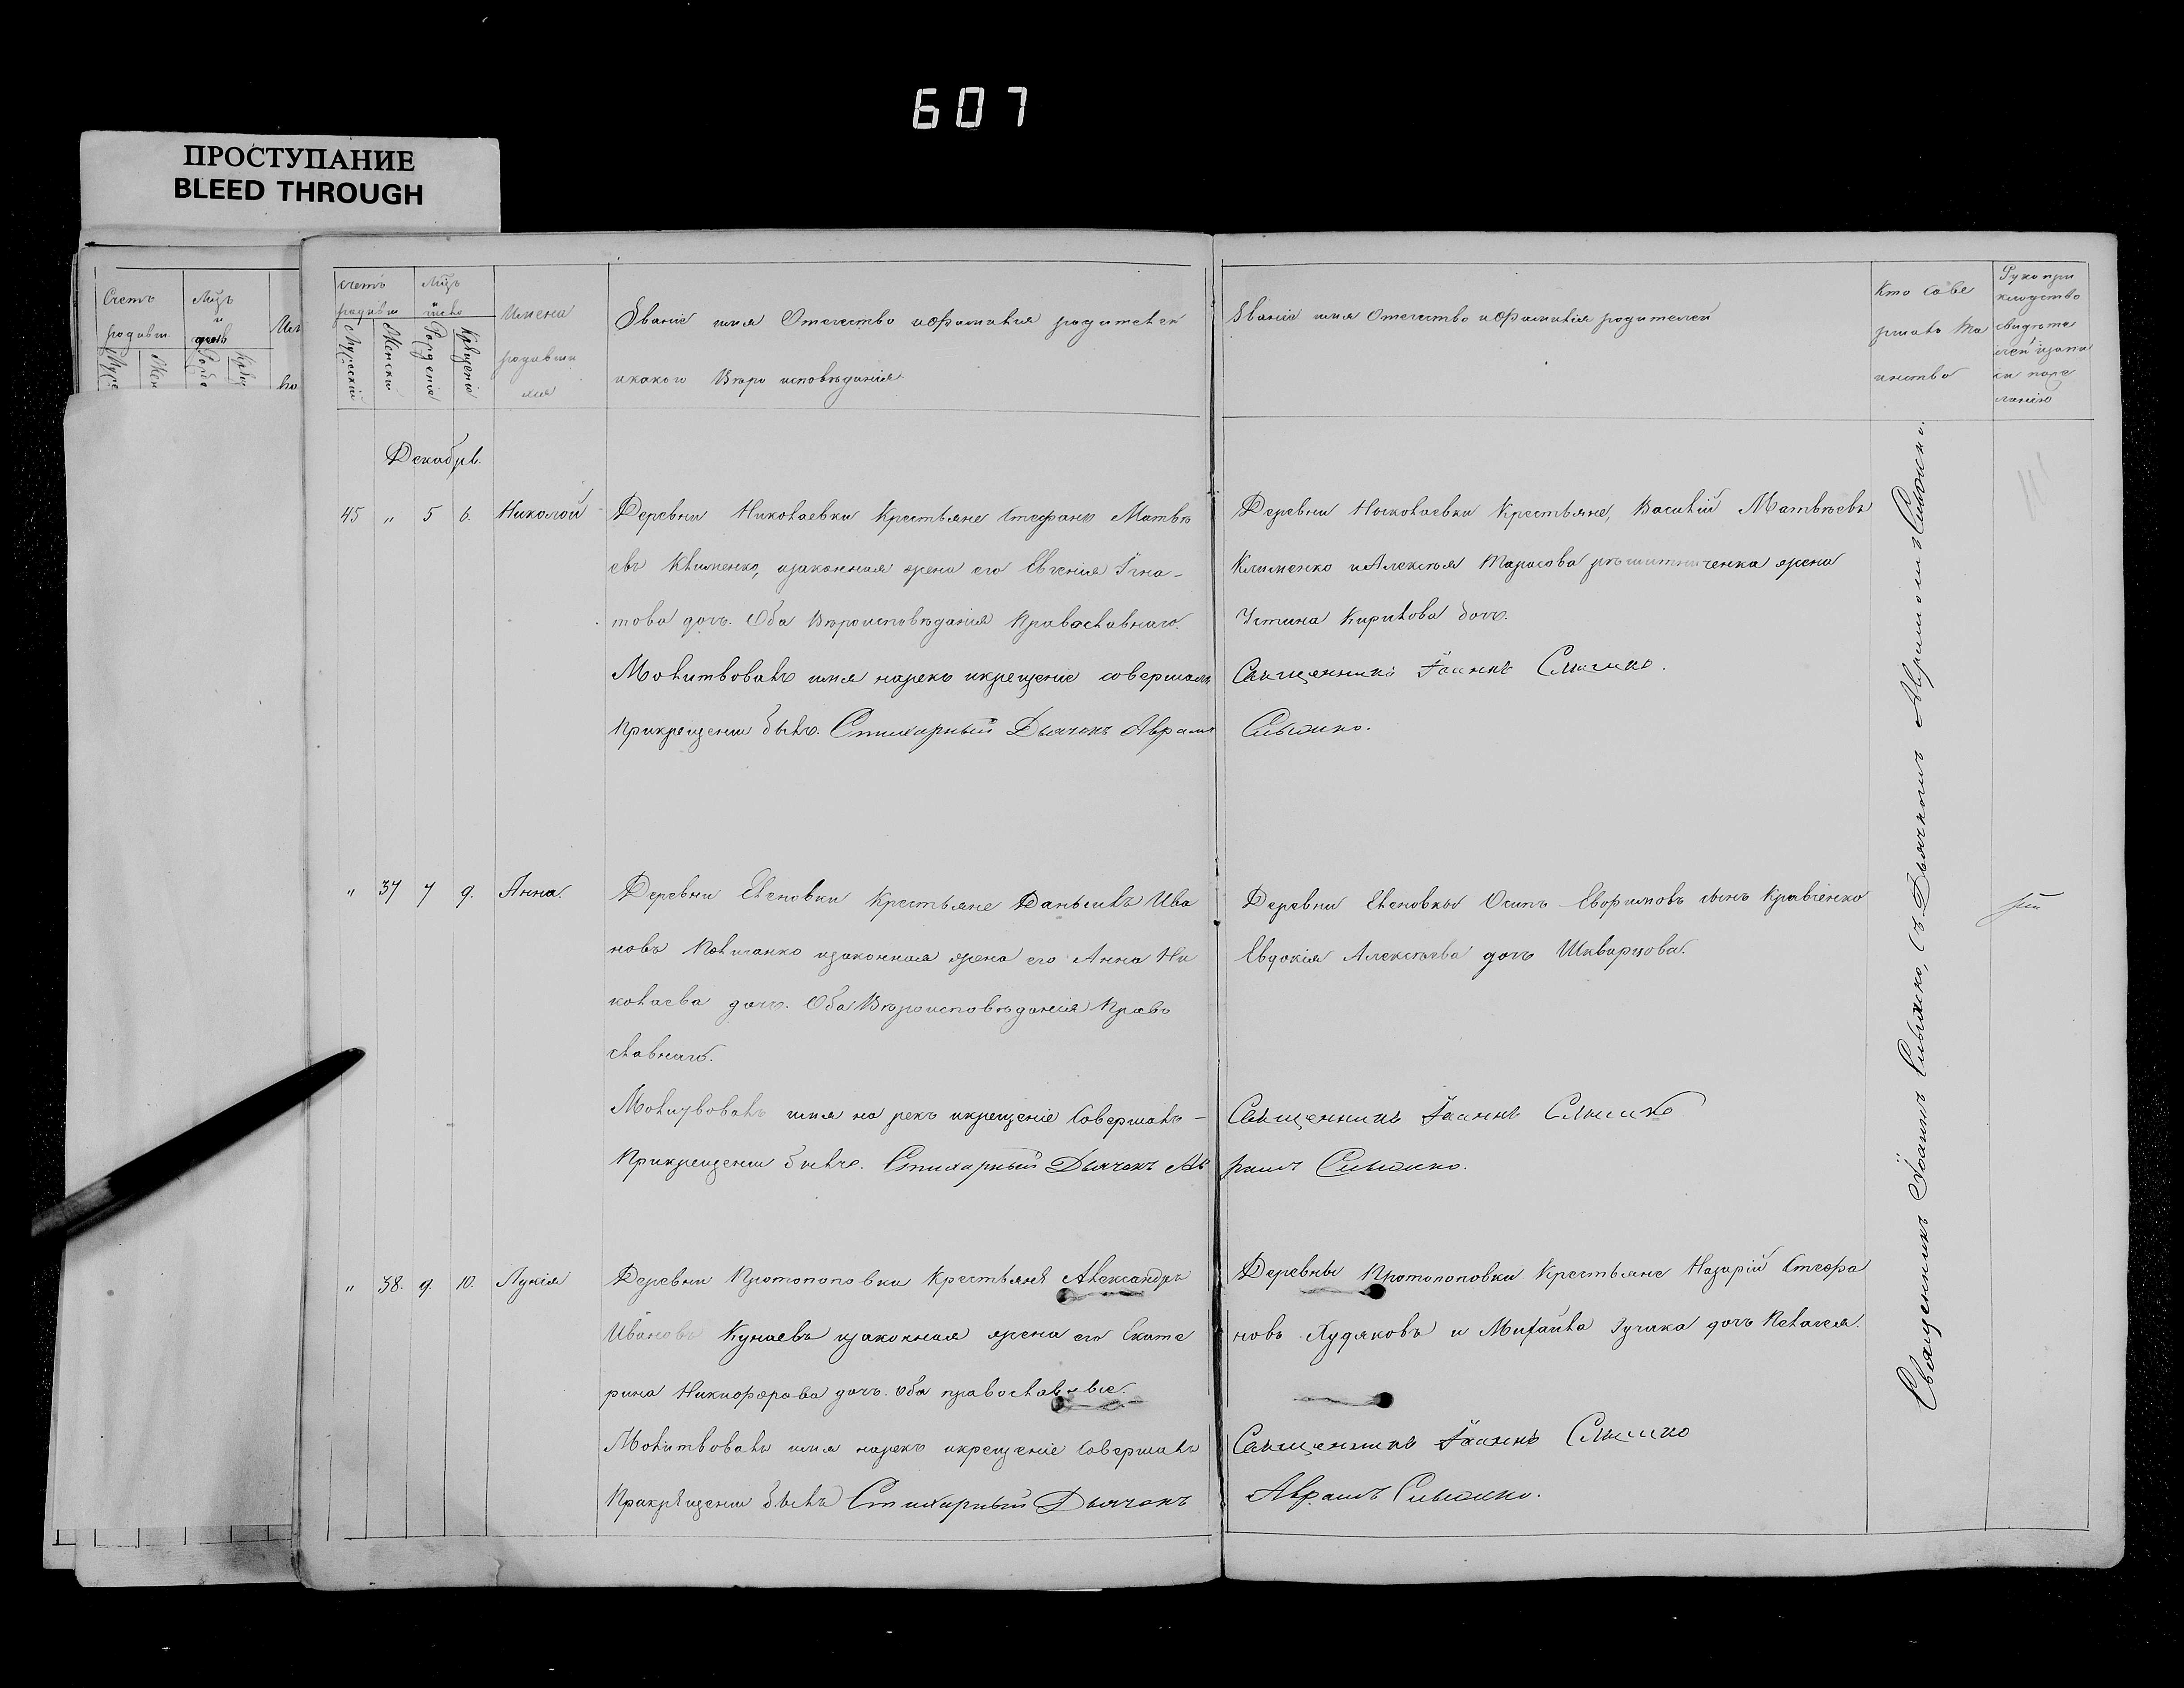 607
ПРОСТУПАНИЕ
BLEED THROUGH
Счетъ
родивш
Мѣць
и
день
Счетъ
родивш
Мужескій
Женски
Мѣць
и
число
Рожденія
Крещенія
Имена
родивши
хся
Званіе имя Отечество и фамилія родителей
и какого Вѣро исповѣданія
Званіе имя Отечество и фамилія родителей
Кто сове
ршалъ та
инство
Рукопри
кладство
свидѣте
лей запи
си поже
ланію
Декабрь.
45 " 5 6. Николай
Деревни Николаевки Крестьяне Стефанъ Матвѣ
евъ Клименко, изаконная жена его Евгенія Игна-
това дочь. Оба Вѣроисповѣданія Православнаго.
Молитвовалъ имя нарекъ икрещеніе совершалъ
Прикрещеніи былъ. Стихарный Дьячекъ Аврамъ
Деревни Николаевки Крестьяне, Василій Матвѣевъ
Клименко и Алексѣя Тарасова жена
Устина Кирилова дочь.
Священникъ Іоаннъ Слышко.
Слышко.
" 37 7 9. Анна.
Деревни Еленовки Крестьяне Данылъ Ива
новъ изаконная жена его Анна Ни
колаева дочь. Оба Вѣроисповѣданія Право
славнаго.
Молитвовалъ имя на рекъ икрещеніе Совершалъ -
Прикрещеніи былъ. Стихарный Дьячекъ Ав
Деревни Еленовкы Осипъ Евфимовъ сынъ Кравченко
Евдокія Алексѣева дочь Шкварцова.
Священникъ Іоаннъ Слышко
рамъ Слышко.
" 38. 9. 10. Лукія
Деревни Протопоповки Крестьяне Александръ
Ивановъ Кунаевъ изаконная жена его Екате
рина Никифорова дочь. Оба православные.
Молитвовалъ имя нарекъ икрещеніе Совершалъ
Прикрещеніи былъ Стихарный Дьячекъ
Деревны Протопоповки Крестьяне Назарій Стефа
новъ Худяковъ и Михаила Гучака дочь Пелагея.
Священникъ Іоаннъ Слышко
Аврамъ Слышко.
Священникъ Іоаннъ Слышко, Съ Дьячкомъ Аврамомъ Слышко.